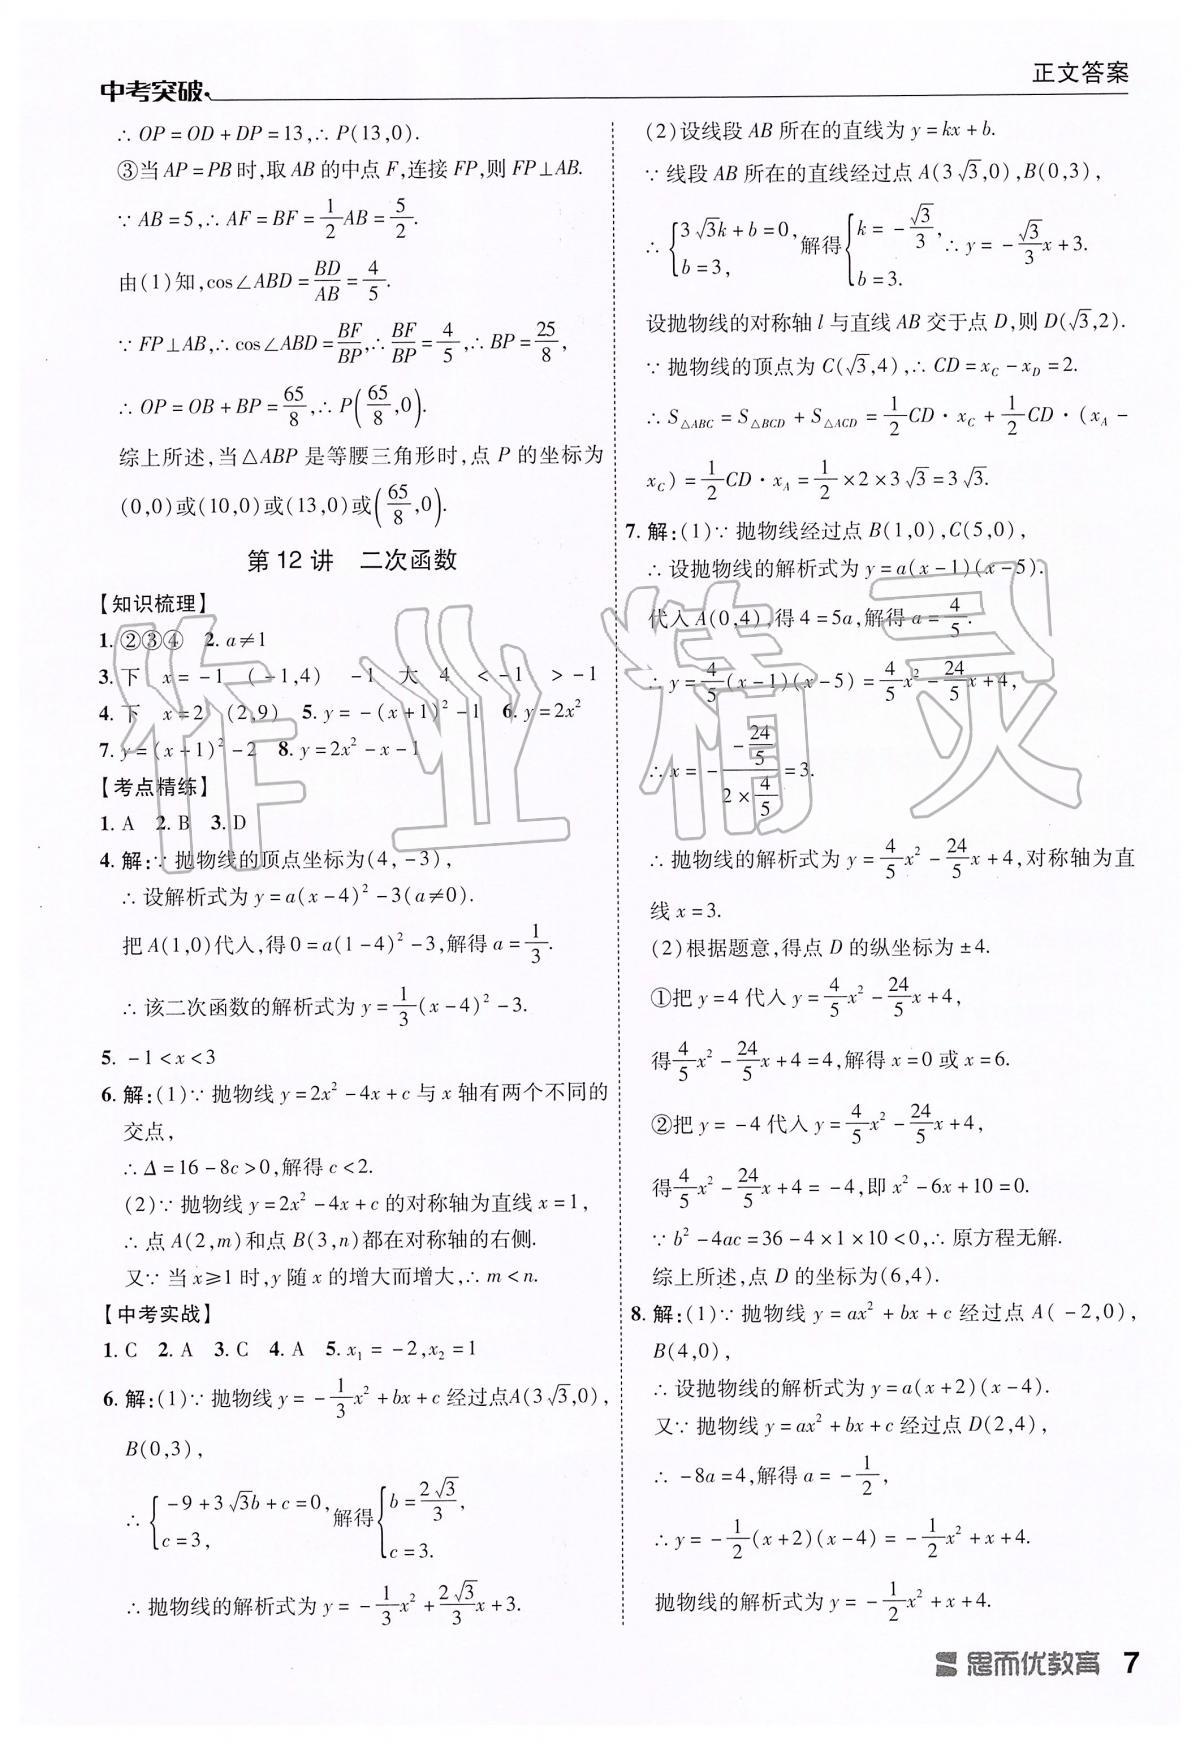 中考突破
正文答案
∴ OP = OD + DP = 13,∴ P(13,0).
③当 AP = PB 时,取 AB 的中点 F,连接 FP,则 FP⊥AB.
∵ AB = 5,∴ AF = BF = 1/2 AB = 5/2.
由(1)知,cos∠ABD = BD/AB = 4/5.
∵ FP⊥AB,∴ cos∠ABD = BF/BP,∴ BF/BP = 4/5,∴ BP = 25/8,
∴ OP = OB + BP = 65/8,∴ P(65/8,0).
综上所述,当△ABP 是等腰三角形时,点 P 的坐标为
(0,0)或(10,0)或(13,0)或(65/8,0).
第 12 讲 二次函数
【知识梳理】
1. ②③④ 2. a≠1
3. 下 x = -1 (-1,4) -1 大 4 < -1 > -1
4. 下 x = 2 (2,9) 5. y = -(x+1)² - 1 6. y = 2x²
7. y = (x-1)² - 2 8. y = 2x² - x - 1
【考点精练】
1. A 2. B 3. D
4. 解:∵ 抛物线的顶点坐标为(4,-3),
∴ 设解析式为 y = a(x-4)² - 3(a≠0).
把 A(1,0)代入,得 0 = a(1-4)² - 3,解得 a = 1/3.
∴ 该二次函数的解析式为 y = 1/3(x-4)² - 3.
5. -1 < x < 3
6. 解:(1)∵ 抛物线 y = 2x² - 4x + c 与 x 轴有两个不同的
交点,
∴ Δ = 16 - 8c > 0,解得 c < 2.
(2)∵ 抛物线 y = 2x² - 4x + c 的对称轴为直线 x = 1,
∴ 点 A(2,m)和点 B(3,n)都在对称轴的右侧.
又∵ 当 x≥1 时,y 随 x 的增大而增大,∴ m < n.
【中考实战】
1. C 2. A 3. C 4. A 5. x₁ = -2,x₂ = 1
6. 解:(1)∵ 抛物线 y = -1/3 x² + bx + c 经过点A(3√3,0),
B(0,3),
∴ { -9 + 3√3b + c = 0, c = 3, 解得 { b = 2√3/3, c = 3.
∴ 抛物线的解析式为 y = -1/3 x² + 2√3/3 x + 3.
(2)设线段 AB 所在的直线为 y = kx + b.
∵ 线段 AB 所在的直线经过点 A(3√3,0),B(0,3),
∴ { 3√3k + b = 0, b = 3, 解得 { k = -√3/3, b = 3. ∴ y = -√3/3 x + 3.
设抛物线的对称轴 l 与直线 AB 交于点 D,则 D(√3,2).
∵ 抛物线的顶点为 C(√3,4),∴ CD = x_C - x_D = 2.
∴ S△ABC = S△BCD + S△ACD = 1/2 CD · x_C + 1/2 CD · (x_A -
x_C) = 1/2 CD · x_A = 1/2 × 2 × 3√3 = 3√3.
7. 解:(1)∵ 抛物线经过点 B(1,0),C(5,0),
∴ 设抛物线的解析式为 y = a(x-1)(x-5).
代入 A(0,4),得 4 = 5a,解得 a = 4/5.
∴ y = 4/5(x-1)(x-5) = 4/5 x² - 24/5 x + 4,
∴ x = -(-24/5)/(2 × 4/5) = 3.
∴ 抛物线的解析式为 y = 4/5 x² - 24/5 x + 4,对称轴为直
线 x = 3.
(2)根据题意,得点 D 的纵坐标为 ±4.
①把 y = 4 代入 y = 4/5 x² - 24/5 x + 4,
得 4/5 x² - 24/5 x + 4 = 4,解得 x = 0 或 x = 6.
②把 y = -4 代入 y = 4/5 x² - 24/5 x + 4,
得 4/5 x² - 24/5 x + 4 = -4,即 x² - 6x + 10 = 0.
∵ b² - 4ac = 36 - 4×1×10 < 0,∴ 原方程无解.
综上所述,点 D 的坐标为(6,4).
8. 解:(1)∵ 抛物线 y = ax² + bx + c 经过点 A(-2,0),
B(4,0),
∴ 设抛物线的解析式为 y = a(x+2)(x-4).
又∵ 抛物线 y = ax² + bx + c 经过点 D(2,4),
∴ -8a = 4,解得 a = -1/2,
∴ y = -1/2(x+2)(x-4) = -1/2 x² + x + 4.
抛物线的解析式为 y = -1/2 x² + x + 4.
作业精灵
思而优教育 7